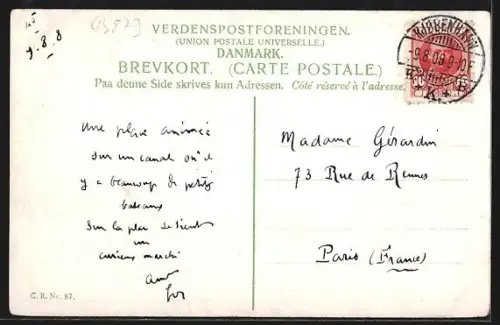 (1582)
9.8.8
VERDENSPOSTFORENINGEN.
(UNION POSTALE UNIVERSELLE.)
DANMARK.
BREVKORT. (CARTE POSTALE.)
Paa denne Side skrives kun Adressen. Côté réservé à l'adresse.
KJØBENHAVN
-9.8.08.9-10F
K.
Une place animée
sur un canal où il
y a beaucoup de petits
bateaux
Sur la place se tient
un
curieux marché
Madame Gérardin
73 Rue de Rennes
Paris (France)
C. R. No. 87.